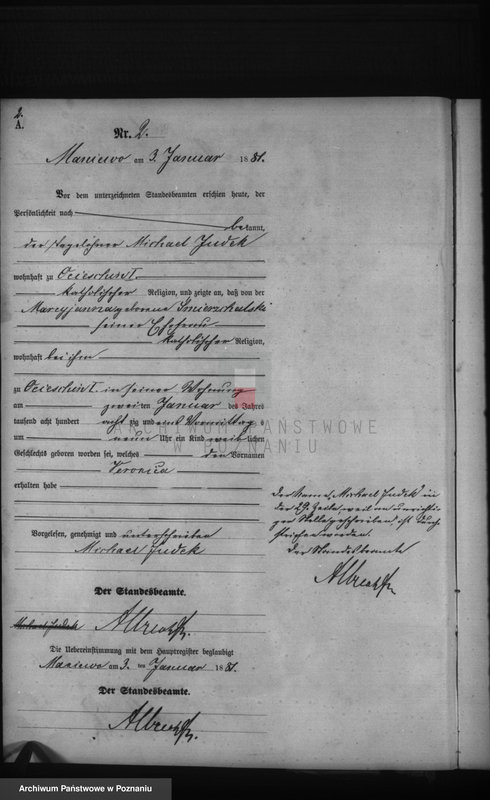 2.
A.
Nr. 2.
Maniewo am 3. Januar 1881.
Vor dem unterzeichneten Standesbeamten erschien heute, der
Persönlichkeit nach
bekannt,
der Tagelöhner Michael Judek
wohnhaft zu Ocieschin I.
katholischer Religion, und zeigte an, daß von der
Maryjanna geborene Smierzchalski
seiner Ehefrau
katholischer Religion,
wohnhaft bei ihm
ARCHIWUM PAŃSTWOWE
W POZNANIU
zu Ocieschin I. in seiner Wohnung
am zweiten Januar des Jahres
tausend acht hundert acht zig und eins Vormittag s
um neun Uhr ein Kind weib lichen
Geschlechts geboren worden sei, welches den Vornamen
Veronica
erhalten habe
Vorgelesen, genehmigt und unterschrieben
Michael Judek
Der Standesbeamte.
Michael Judek Albrecht
Die Uebereinstimmung mit dem Hauptregister beglaubigt
Maniewo am 3. ten Januar 1881.
Der Standesbeamte.
Albrecht
Der Name „Michael Judek" in
der 29. Zeile, weil an unrichti-
ger Stelle geschrieben ist durch-
strichen worden.
Der Standesbeamte
Albrecht
Archiwum Państwowe w Poznaniu